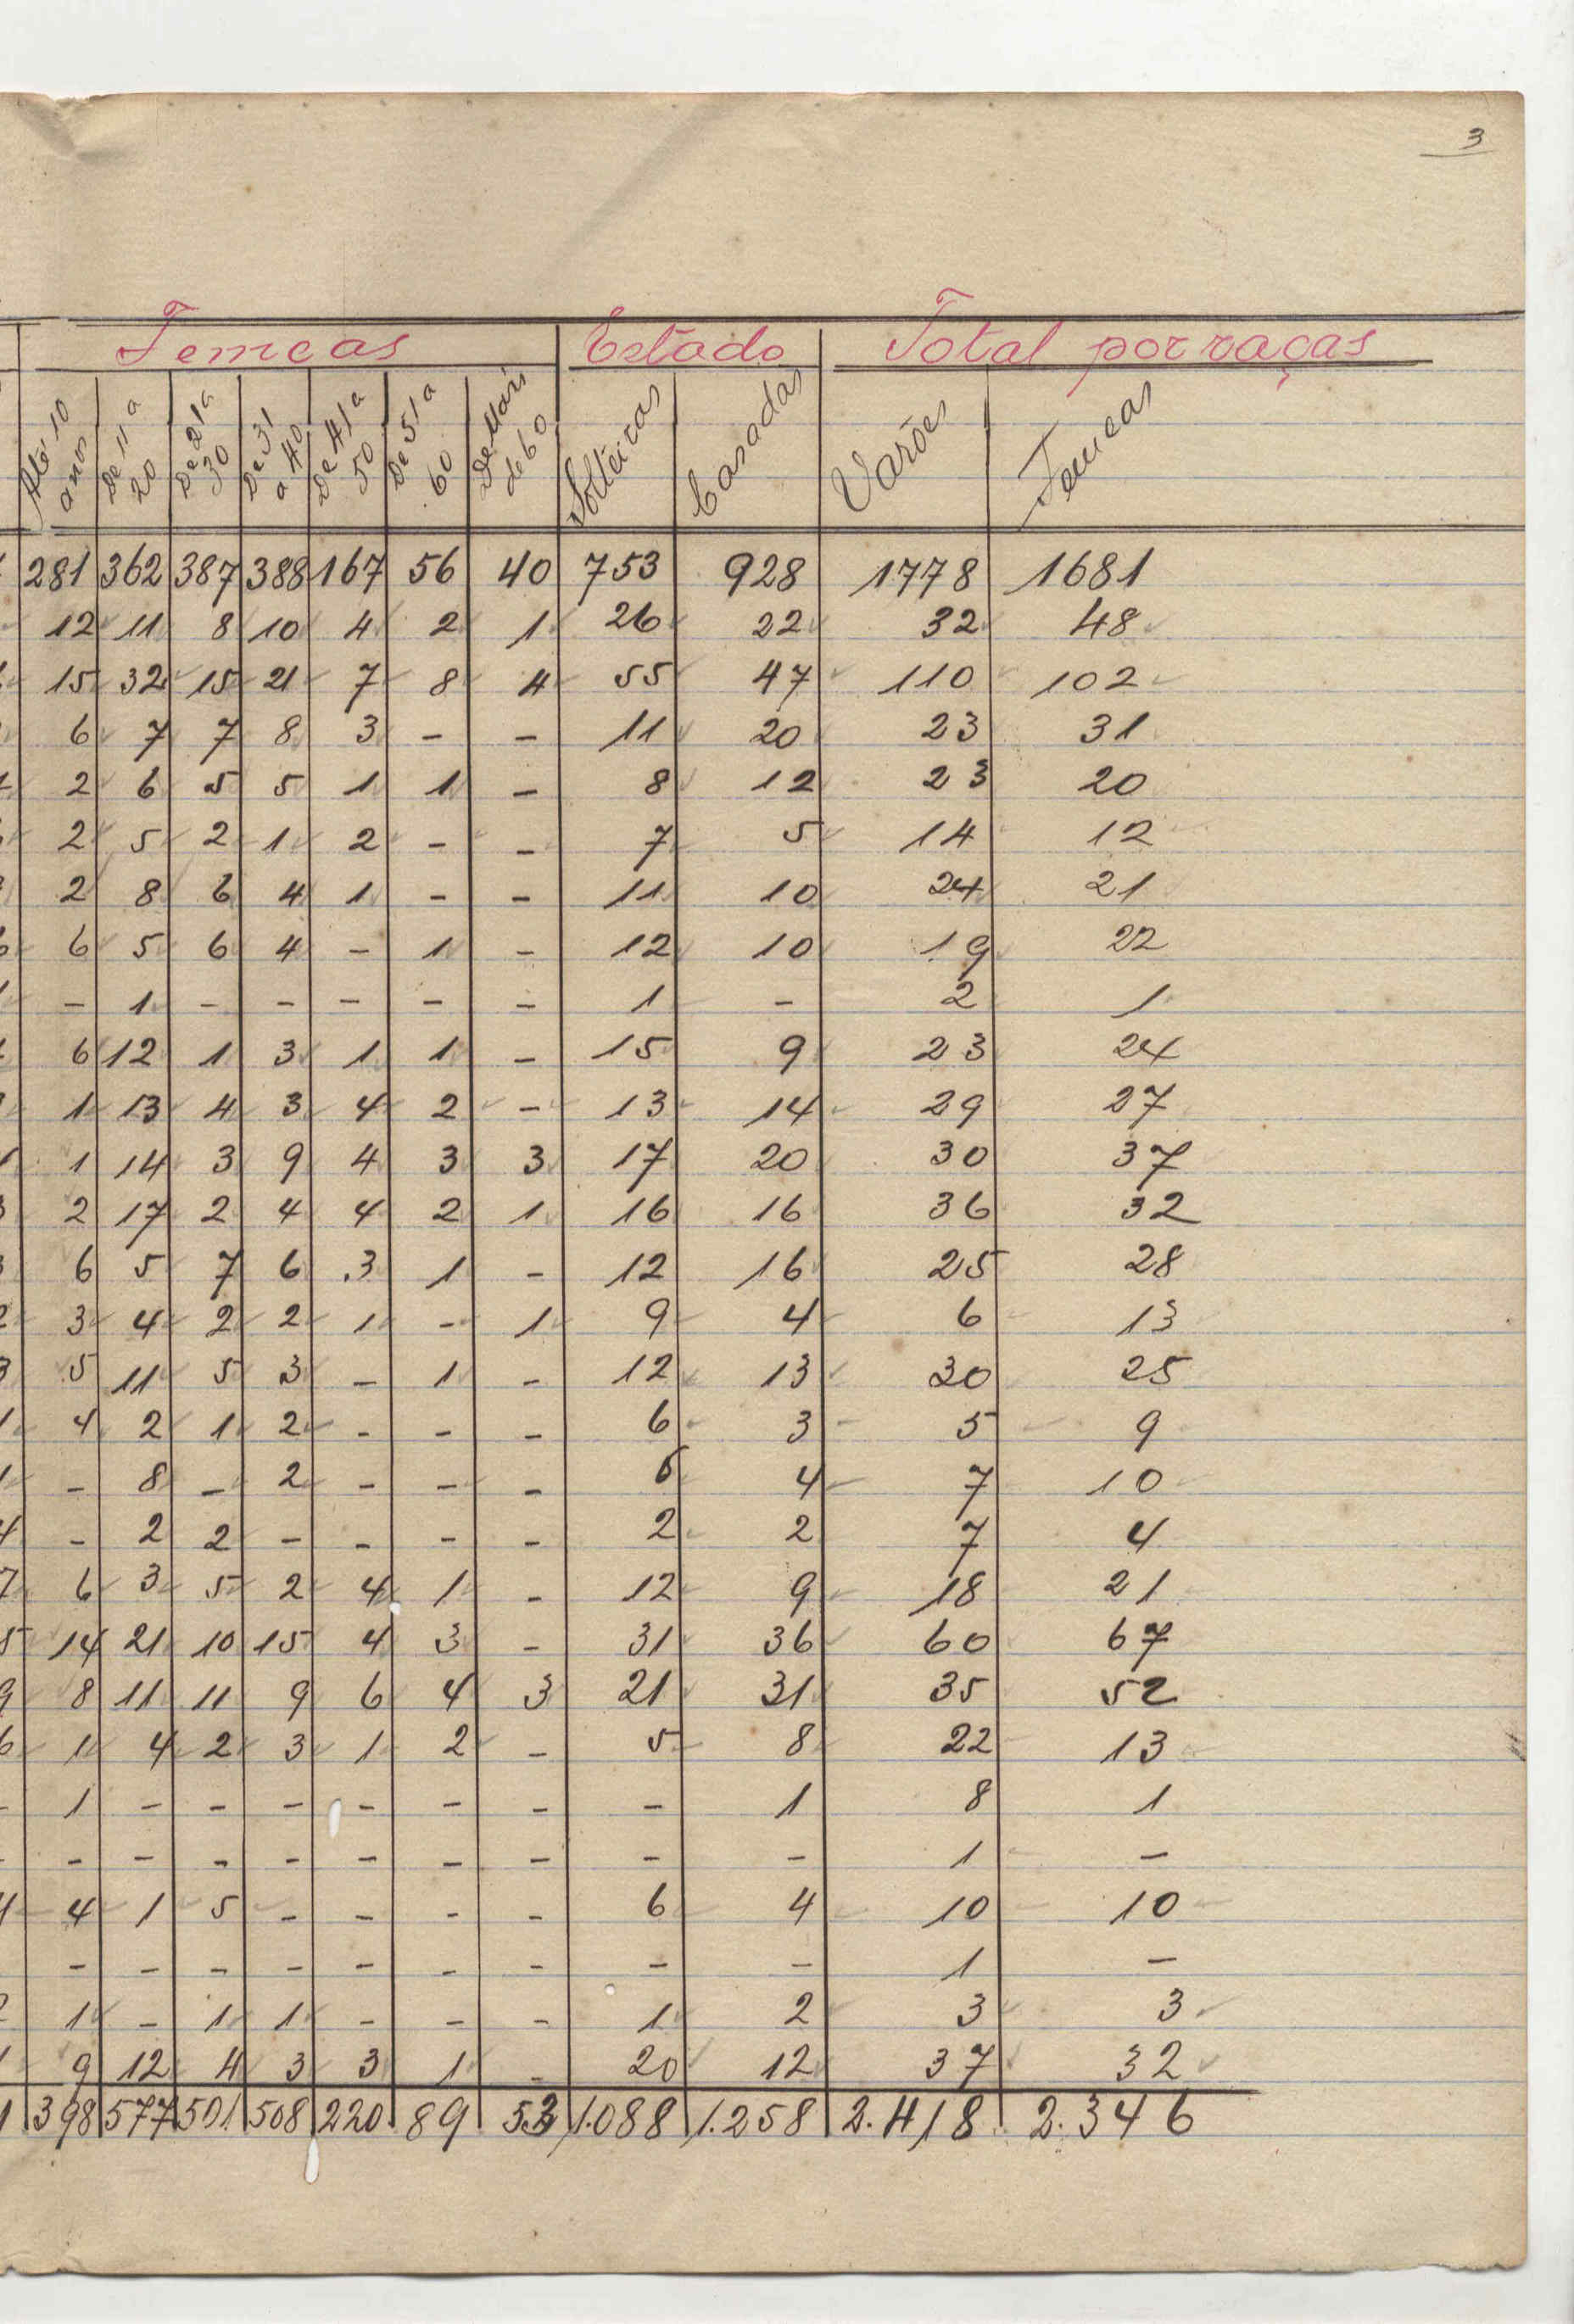 3
Femeas Estado Total por raças
Até 10 anos De 11 a 20 De 21 a 30 De 31 a 40 De 41 a 50 De 51 a 60 De Mais de 60 Solteiras Casadas Varões Femeas
281 362 387 388 167 56 40 753 928 1778 1681
12 11 8 10 4 2 1 26 22 32 48
15 32 15 21 7 8 4 55 47 110 102
6 7 7 8 3 - - 11 20 23 31
2 6 5 5 1 1 - 8 12 23 20
2 5 2 1 2 - - 7 5 14 12
2 8 6 4 1 - - 11 10 24 21
6 5 6 4 - 1 - 12 10 19 22
- 1 - - - - - 1 - 2 1
6 12 1 3 1 1 - 15 9 23 24
1 13 4 3 4 2 - 13 14 29 27
1 14 3 9 4 3 3 17 20 30 37
2 17 2 4 4 2 1 16 16 36 32
6 5 7 6 3 1 - 12 16 25 28
3 4 2 2 1 - 1 9 4 6 13
5 11 5 3 - 1 - 12 13 30 25
4 2 1 2 - - - 6 3 5 9
- 8 - 2 - - - 6 4 7 10
- 2 2 - - - - 2 2 7 4
6 3 5 2 4 1 - 12 9 18 21
14 21 10 15 4 3 - 31 36 60 67
8 11 11 9 6 4 3 21 31 35 52
1 4 2 3 1 2 - 5 8 22 13
1 - - - - - - - 1 8 1
- - - - - - - - - 1 -
4 1 5 - - - - 6 4 10 10
- - - - - - - - - 1 -
1 - 1 1 - - - 1 2 3 3
9 12 4 3 3 1 - 20 12 37 32
398 577 501 508 220 89 53 1.088 1.258 2.418 2.346